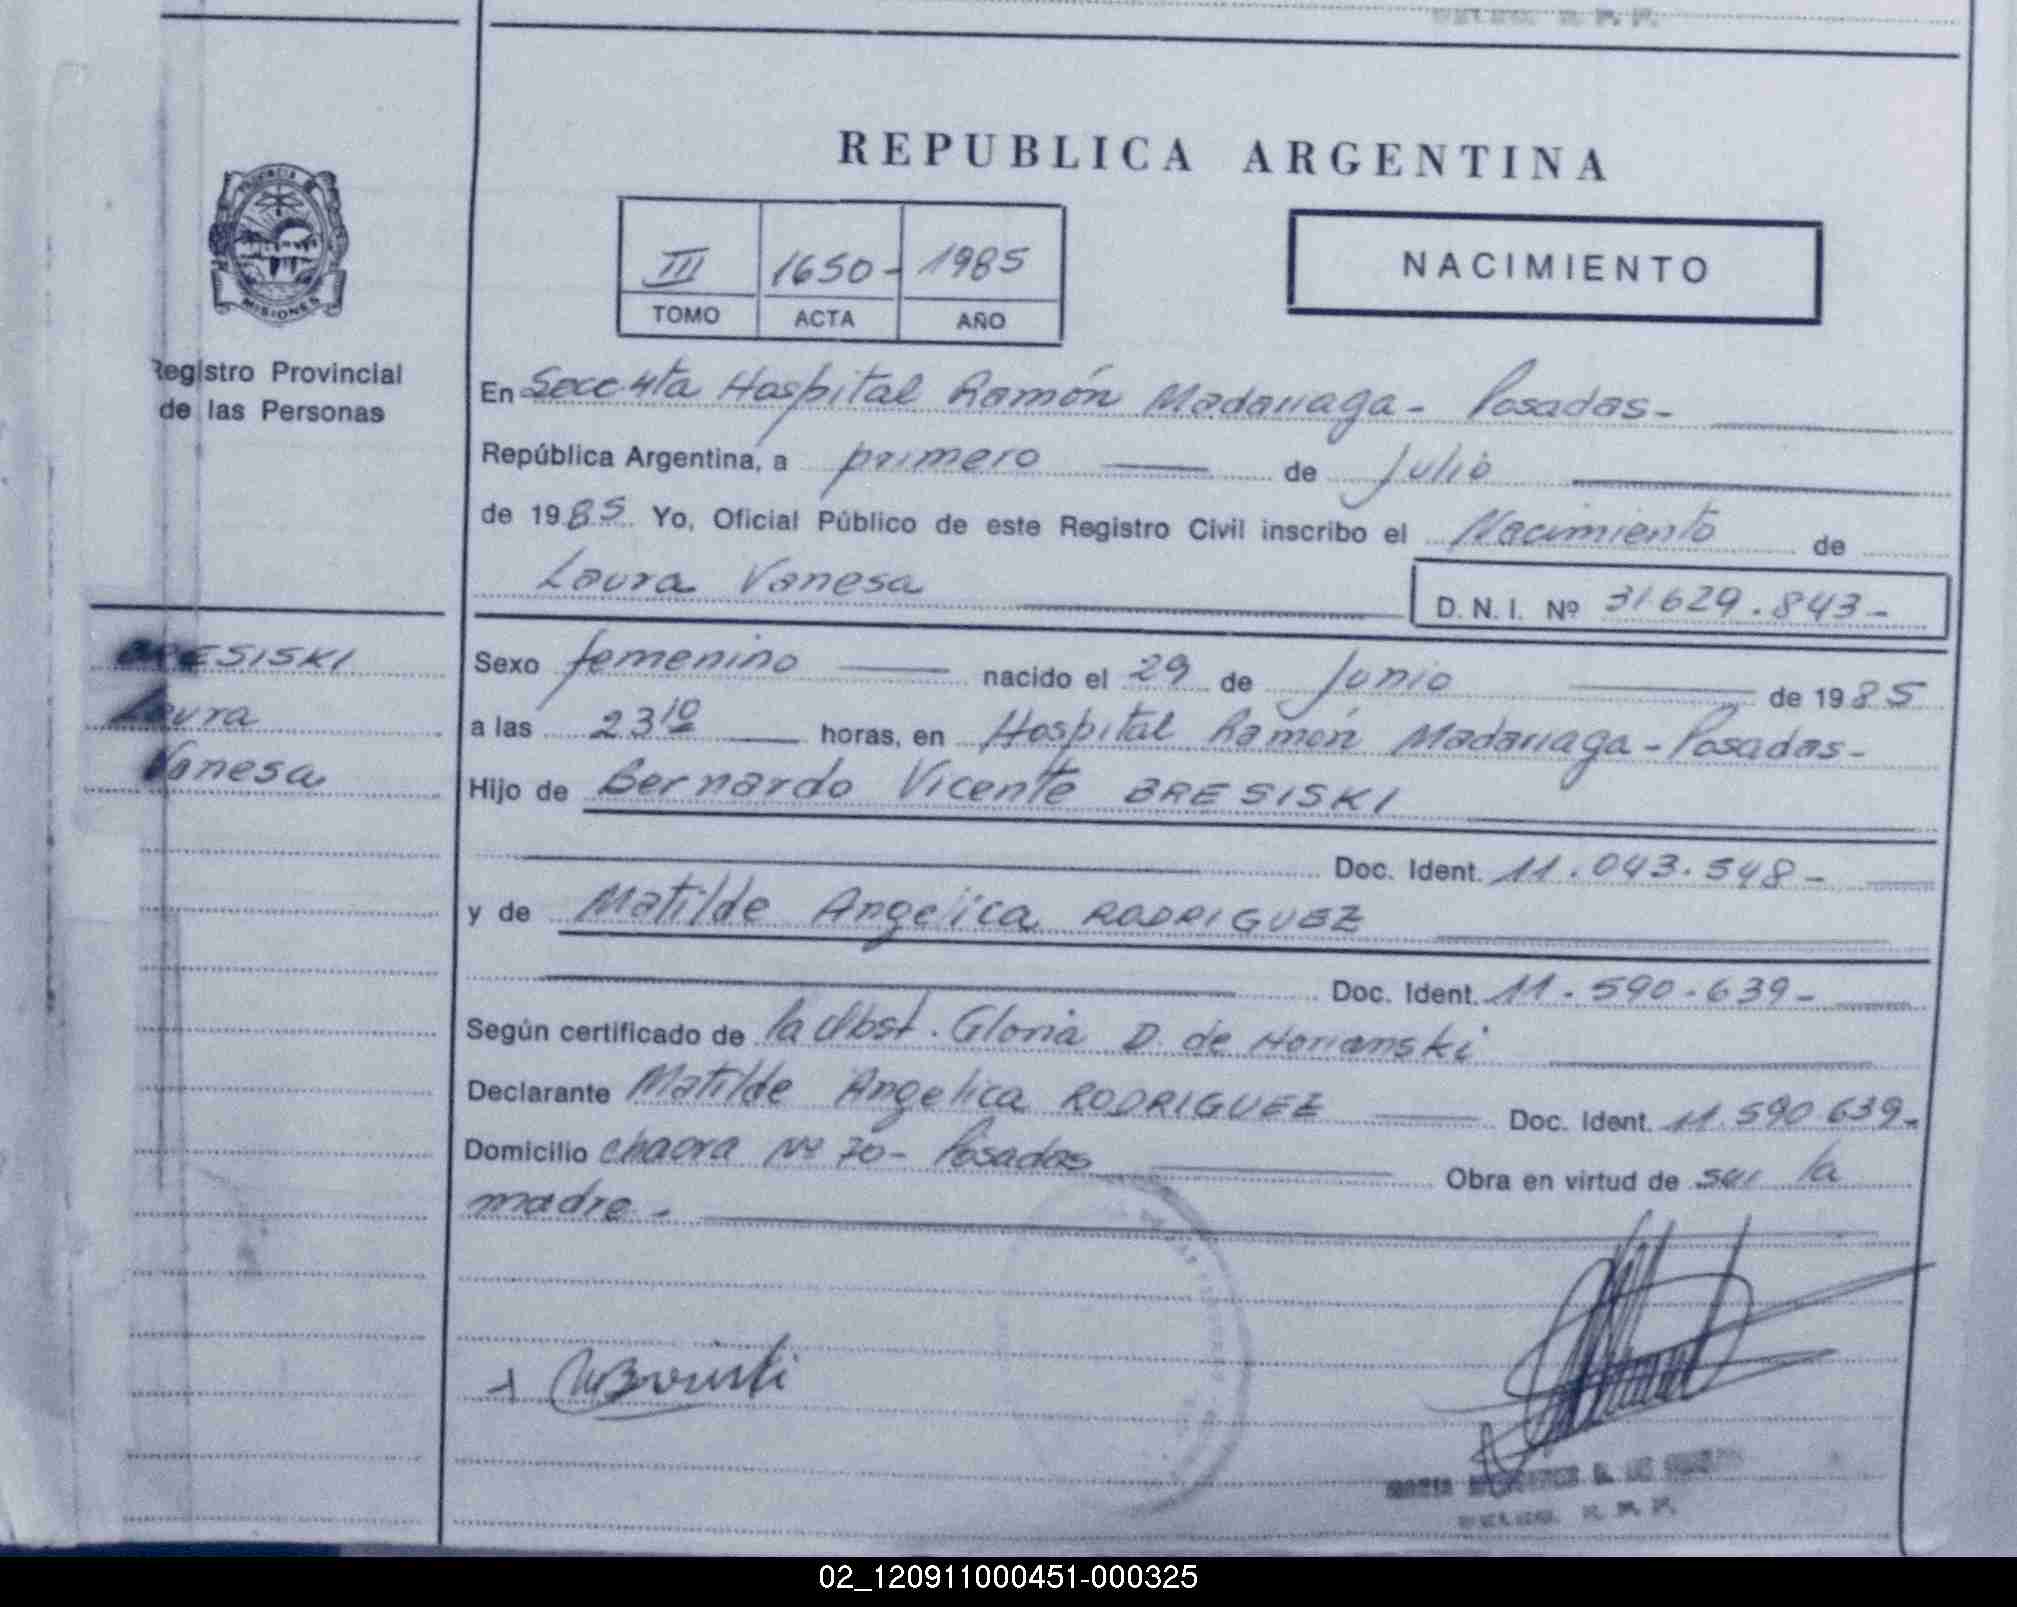 REPUBLICA ARGENTINA
PROVINCIA DE
MISIONES
III 1650- 1985
TOMO ACTA AÑO
NACIMIENTO
Registro Provincial
de las Personas
En Secc 4ta Hospital Ramón Madariaga - Posadas-
República Argentina, a primero de Julio
de 1985 Yo, Oficial Público de este Registro Civil inscribo el Nacimiento de
Laura Vanesa
D. N. I. Nº 31.629.843-
BRESISKI
Laura
Vanesa
Sexo femenino nacido el 29 de Junio de 1985
a las 23 10 horas, en Hospital Ramón Madariaga - Posadas-
Hijo de Bernardo Vicente BRESISKI
Doc. Ident. 11.043.548-
y de Matilde Angelica RODRIGUEZ
Doc. Ident. 11.590.639-
Según certificado de la Obst. Gloria D. de
Declarante Matilde Angelica RODRIGUEZ Doc. Ident. 11.590.639-
Domicilio chacra Nº 70- Posadas Obra en virtud de ser la
madre-
02_120911000451-000325